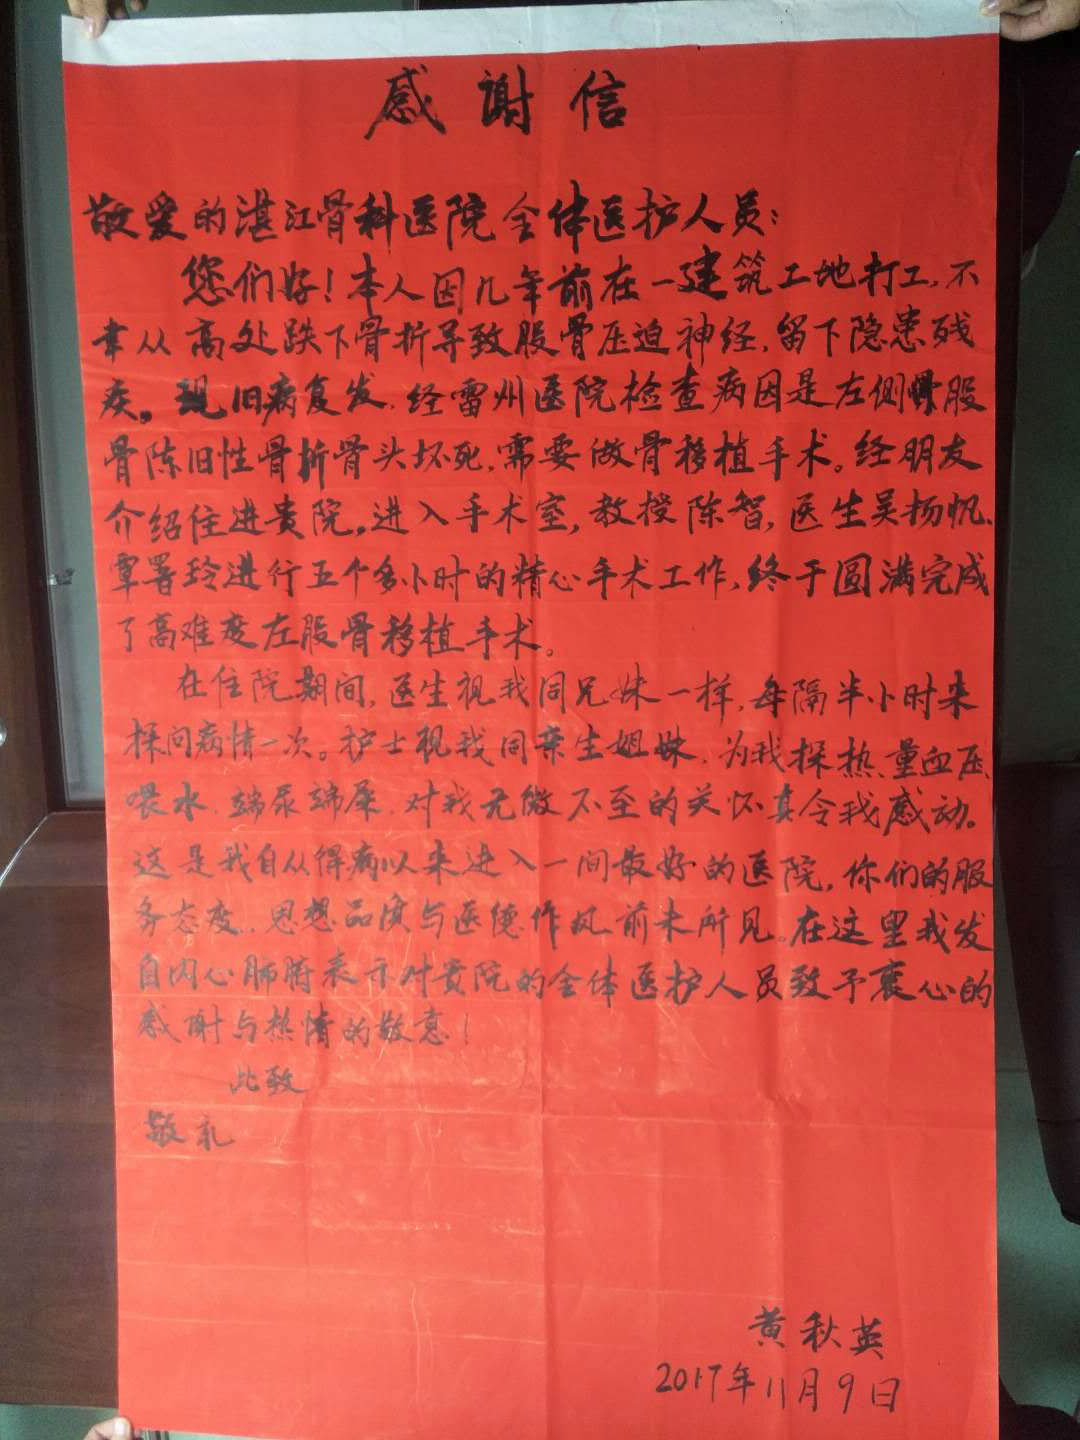 感谢信
敬爱的湛江骨科医院全体医护人员:
您们好!本人因几年前在一建筑工地打工,不
幸从高处跌下骨折导致股骨压迫神经,留下隐患残
疾。现旧病复发,经雷州医院检查病因是左侧股
骨陈旧性骨折骨头坏死,需要做骨移植手术。经朋友
介绍住进贵院。进入手术室,教授陈智,医生吴扬帆、
覃署玲进行五个多小时的精心手术工作,终于圆满完成
了高难度左股骨移植手术。
在住院期间,医生视我同兄妹一样,每隔半小时来
探问病情一次。护士视我同亲生姐妹,为我探热量血压、
喂水、端尿端屎,对我无微不至的关怀真令我感动。
这是我自从得病以来进入一间最好的医院,你们的服
务态度、思想品质与医德作风前未所见。在这里我发
自内心肺腑表示对贵院的全体医护人员致予衷心的
感谢与热情的敬意!
此致
敬礼
黄秋英
2017年11月9日